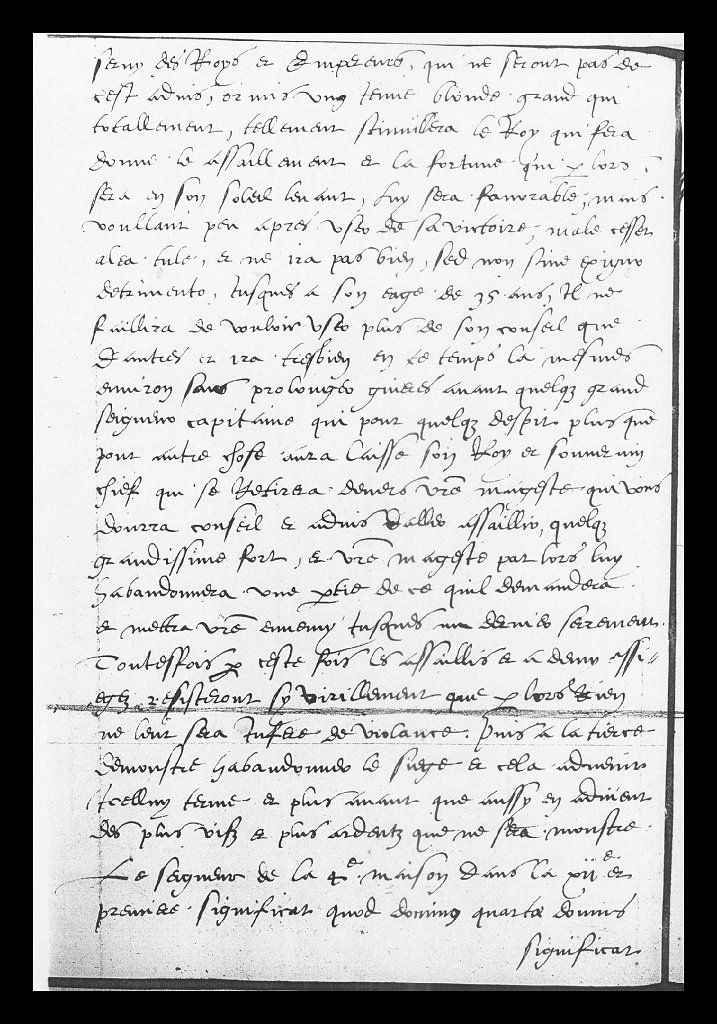 seruy des Roys et Empereurs, qui ne seront pas de
cest aduis, ormis vng ieune blonde grand qui
totallement, tellement stimullera le Roy qui fera
donne le assaillement et la fortune qui p lors
sera en son soleil leuant, luy sera fauorable, mais
voullant peu apres vser de sa victoire, male cesser
alea tule, et ne ira pas bien, sed non sine exiguo
detrimento, Jusques a son eage de 35 ans, Il ne
faillira de vouloir vser plus de son conseil que
d'autres et ira tresbien en ce temps la mesmes
enuiron sans prolonger gueres auant quelq3 grand
seigneur capitaine qui pour quelq3 despit plus que
pour autre chose aura laisse son Roy et souuerain
chief qui se Retirera deuers vre mageste qui vous
dourra conseil et aduis d'aller assaillir, quelq3
grandissime fort, et vre mageste par lors luy
habandonnera vne ptie de ce quil demandera
et mettra vre ennemy Jusques au dernier serement.
Toutesfois p ceste fois les assaillis et a demy assi-
egez resisteront sy virillement que p lors Rien
ne leur sera Infere de violance. Puis a la tierce
demonstre habandonner le siege et cela aduenir
Icelluy terme et plus auant que aussy en aduient
des plus vifz et plus ardentz que ne sera monstre.
Le seigneur de la 4e maison dans la xije et
premiere significat quod dominus quarte domus
significat